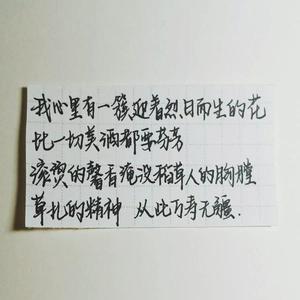 我心里有一簇迎着烈日而生的花
比一切美酒都要芬芳
滚烫的馨香淹没稻草人的胸膛
草扎的精神 从此万寿无疆.